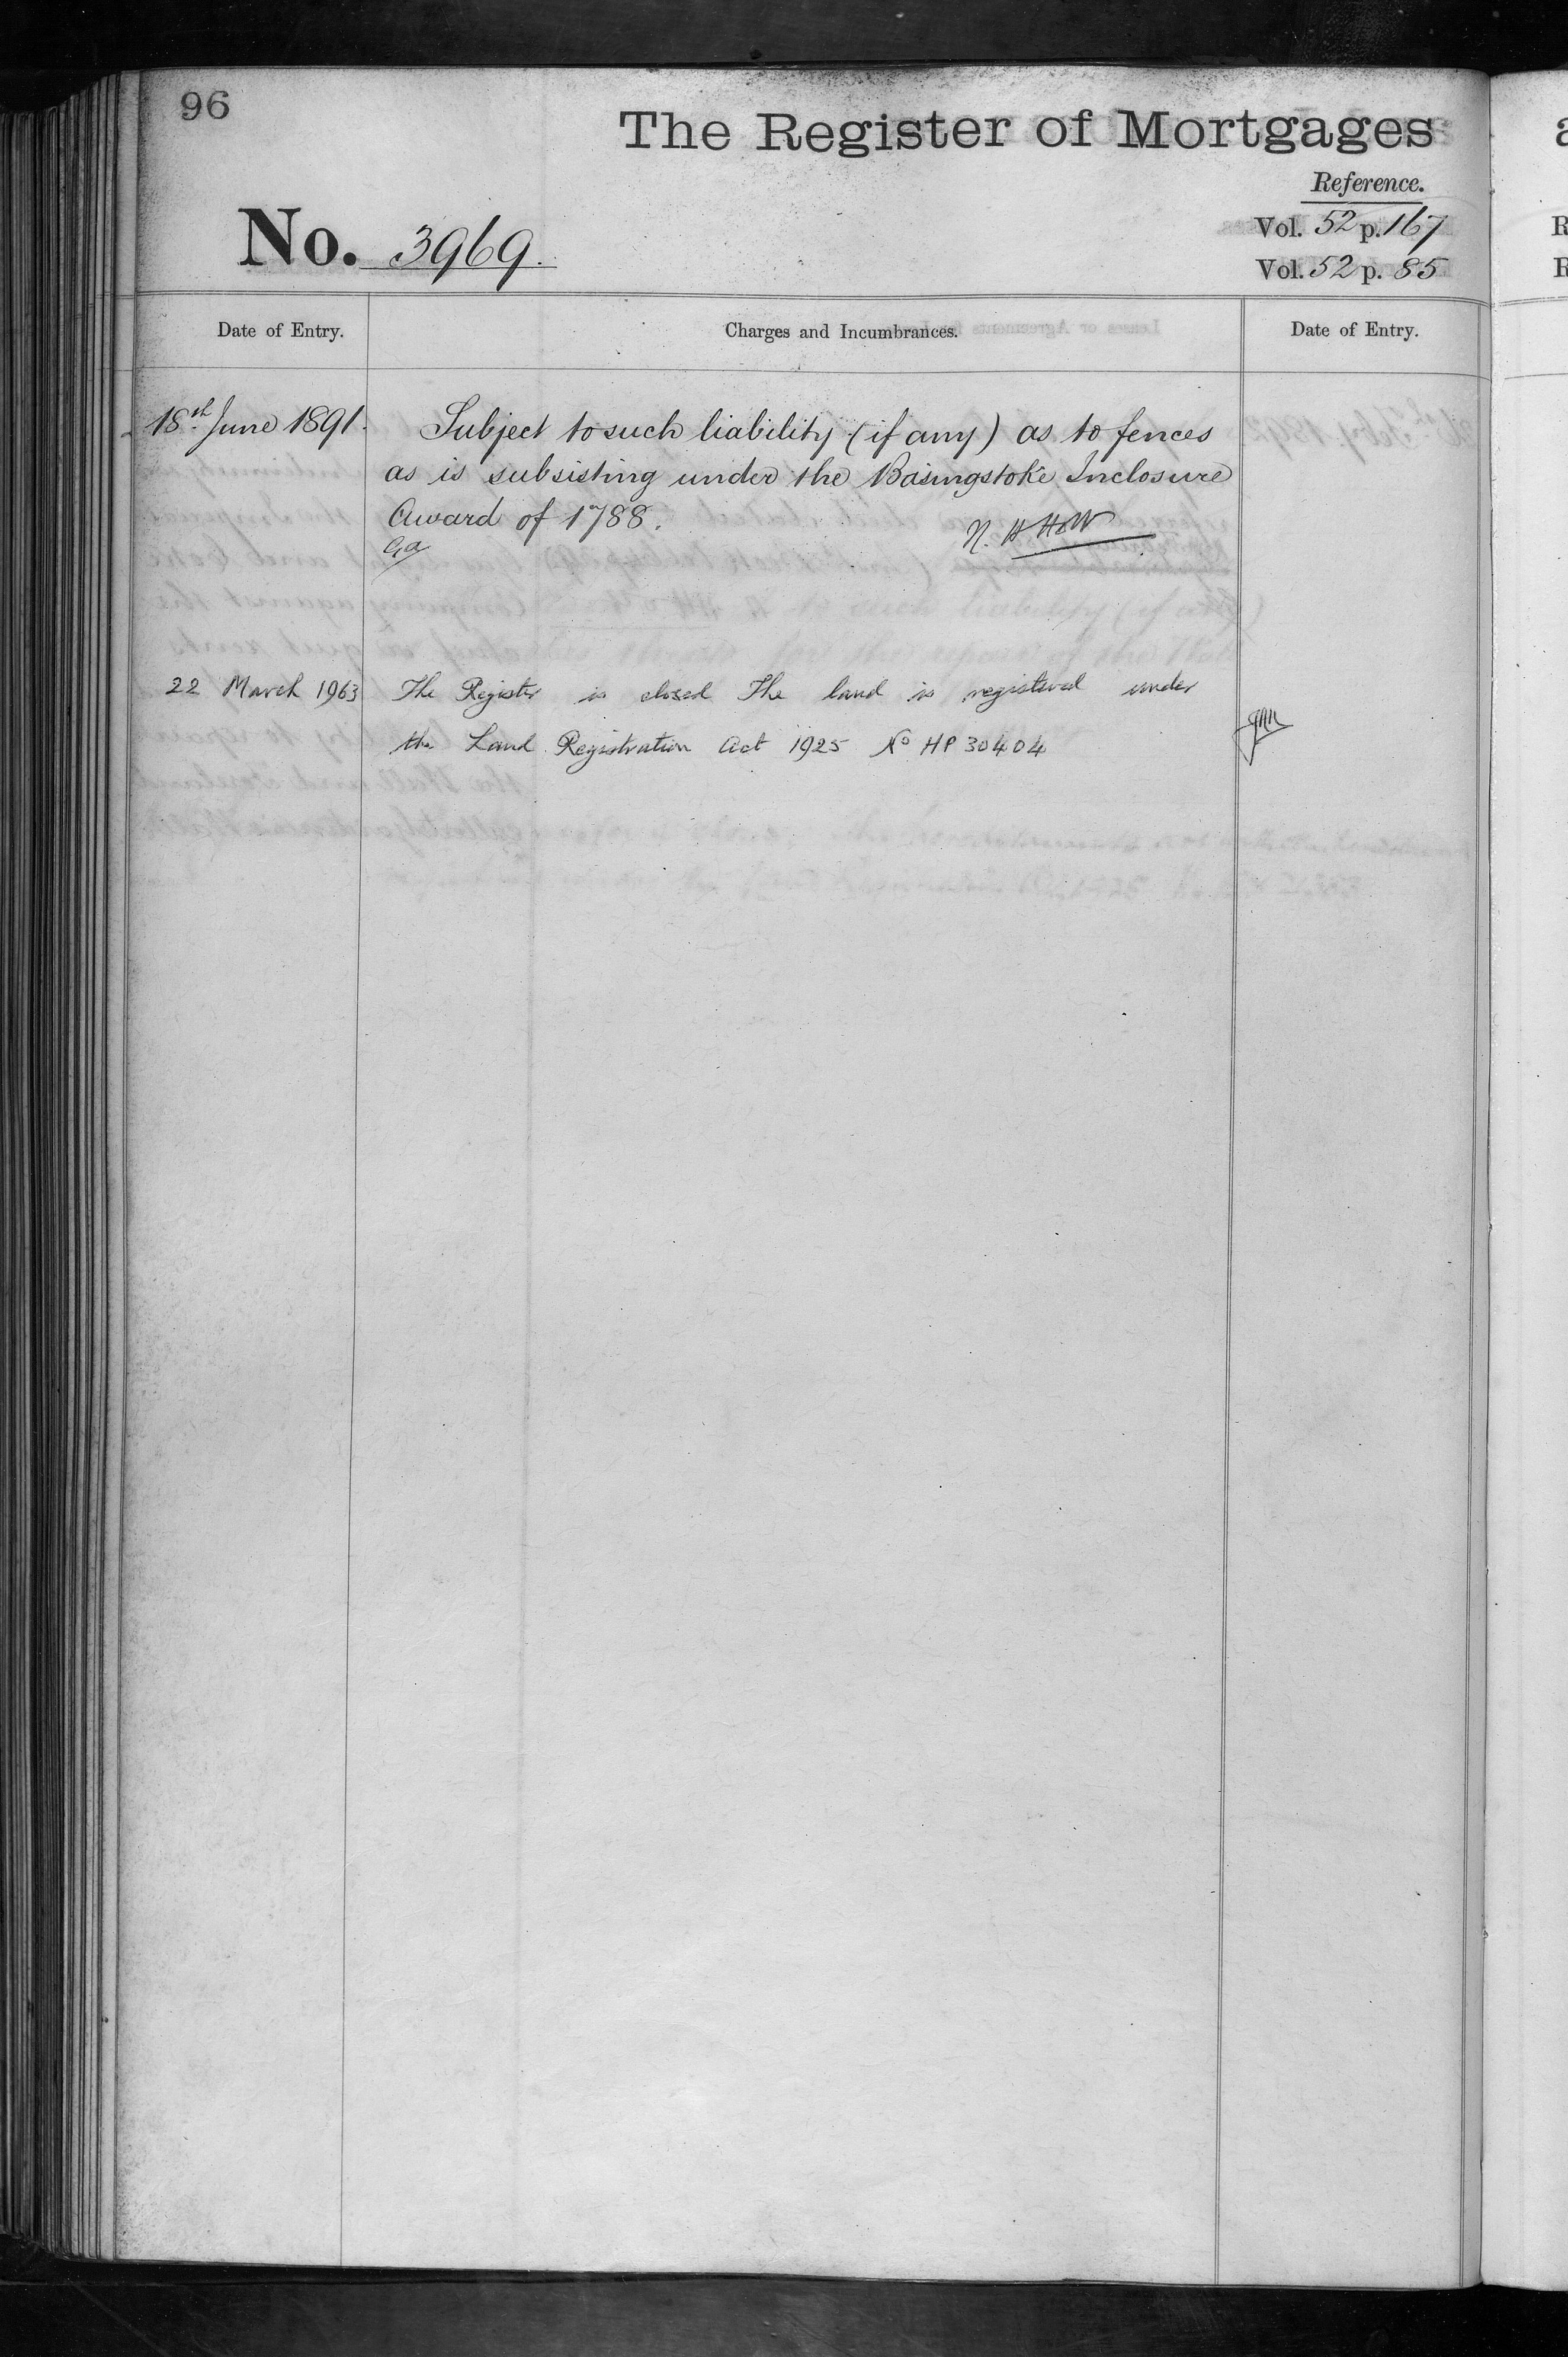 96
The Register of Mortgages
Reference.
No. 3969.
Vol. 52 p. 167
Vol. 52 p. 85
Date of Entry.
Charges and Incumbrances.
Date of Entry.
18th June 1891.
Subject to such liability (if any) as to fences
as is subsisting under the Basingstoke Inclosure
Award of 1788.
22 March 1963
The Register is closed The land is registered under
the Land Registration Act 1925 No HP 30404